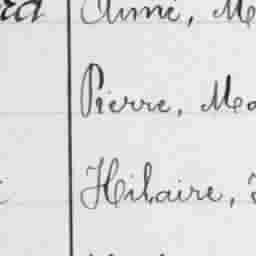 Aimé, M
Pierre, Ma
Hilaire,